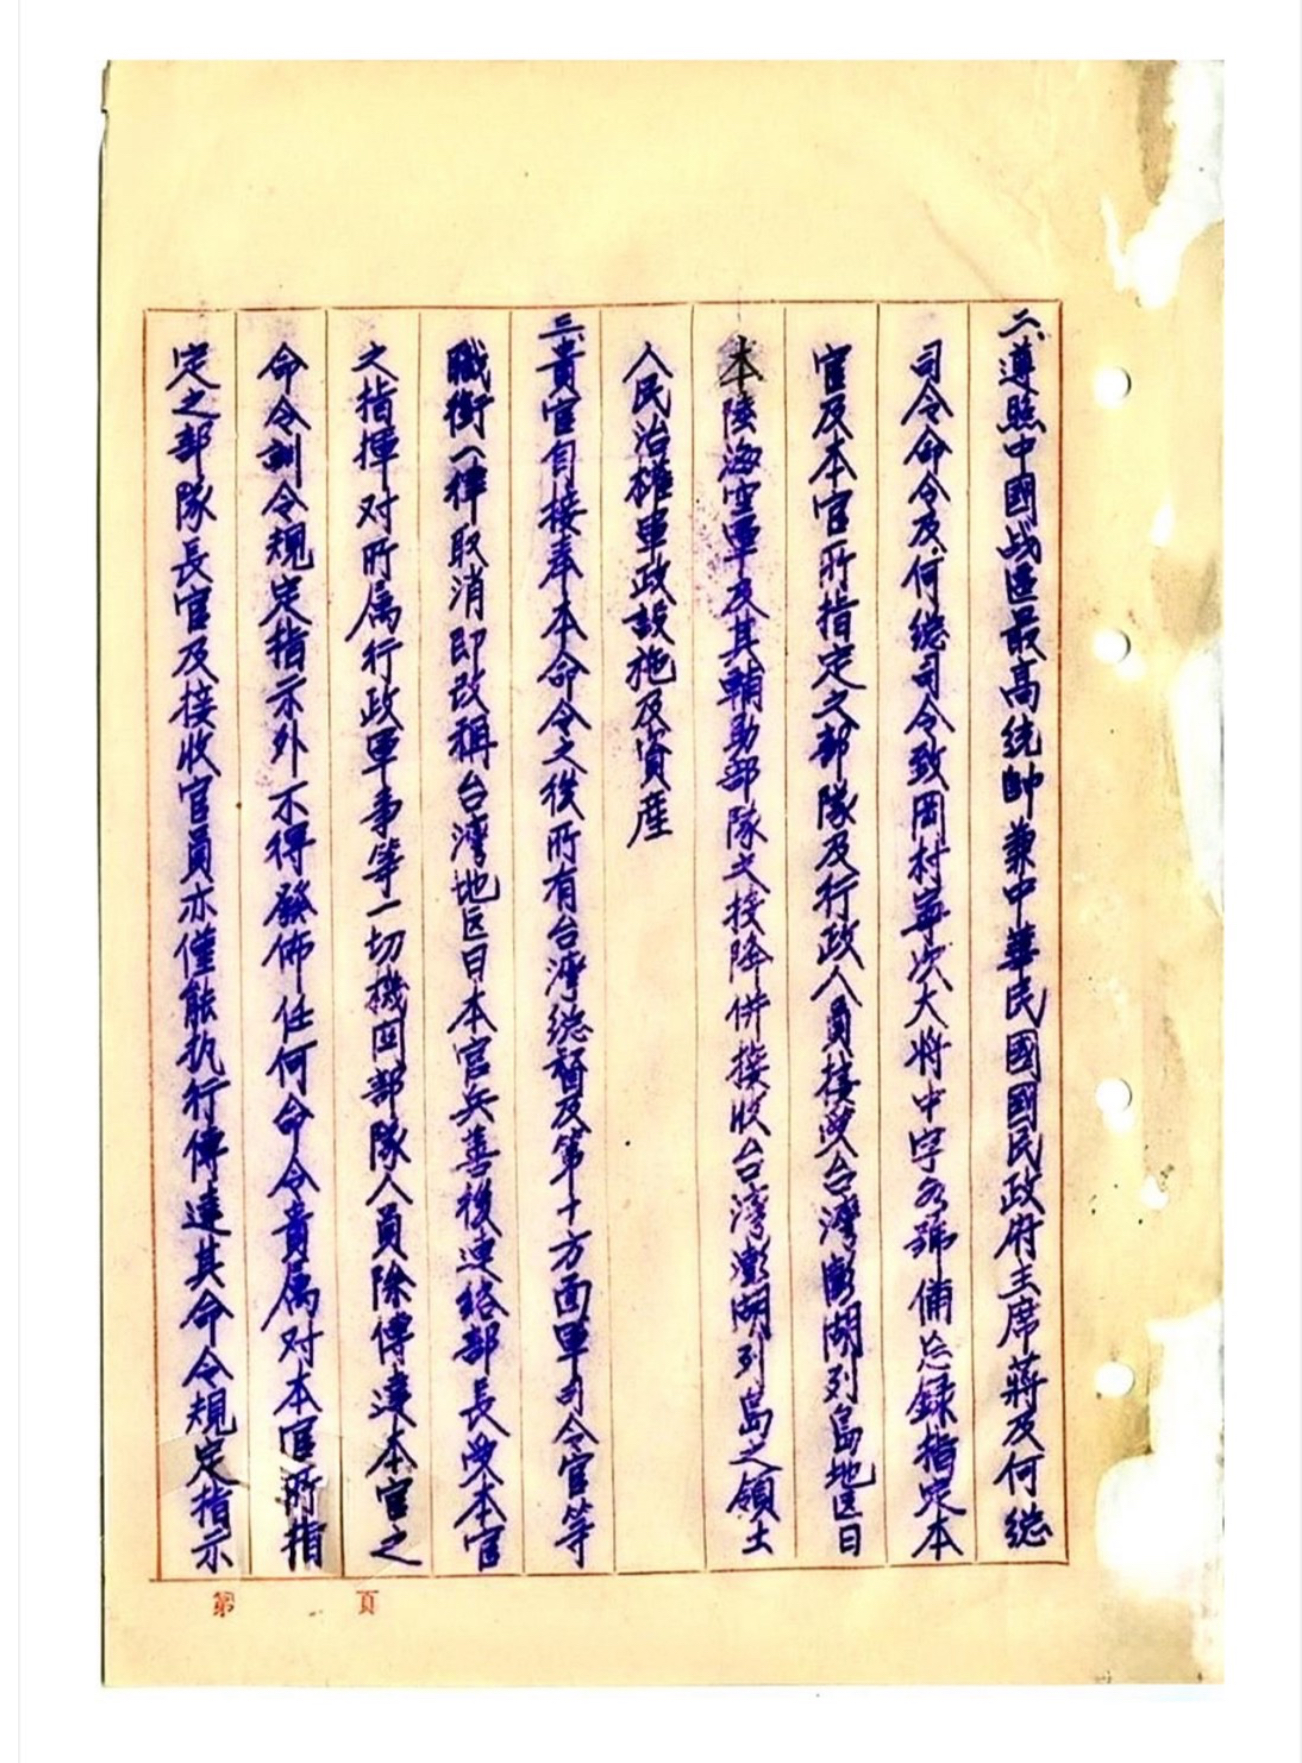 二、遵照中國战區最高统帥兼中華民國國民政府主席蔣及何總
司令命令及何總司令致岡村寧次大將中字各號俻忘録指定本
官及本官所指定之部隊及行政人員接受台灣澎湖列島地区日
本陸海空軍及其輔助部隊之投降併接收台灣澎湖列島之領土
人民治權軍政設施及資産
三、貴官自接奉本命令之後所有台灣總督及第十方面軍司令官等
職銜一律取消即改稱台灣地区日本官兵善後連絡部長受本官
之指揮对所属行政軍事等一切機囬部隊人員除傳達本官之
命令訓令規定指示外不得發佈任何命令貴属对本官所指
定之部隊長官及接收官員亦僅能执行傳達其命令規定指示
第 頁